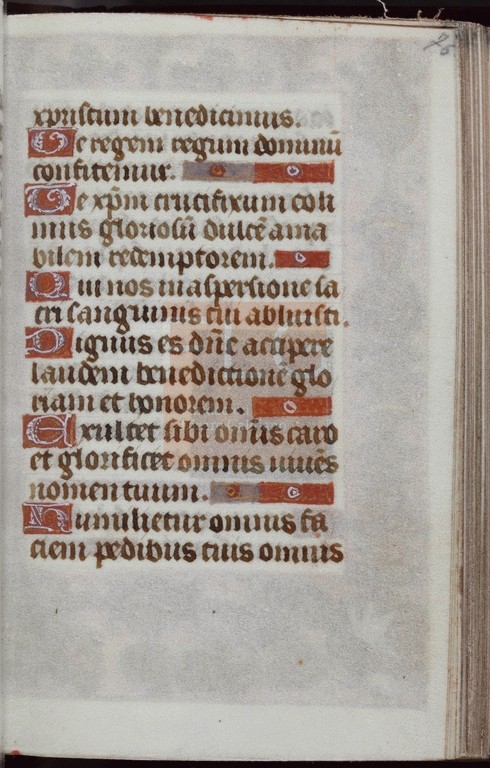 75
xpristum benedicimus.
Te regem regum dominū
confitemur.
Te xp̄m crucifixum coli
mus gloriosū dulcē ama
bilem redemptorem.
Qui nos in aspersione sa
cri sanguinis tui abluisti.
Dignus es dn̄e accipere
laudem benedictionē glo
riam et honorem.
Exultet tibi om̄is caro
et glorificet omnis viuēs
nomen tuum.
Humilietur omnis fa
ciem pedibus tuis omnis